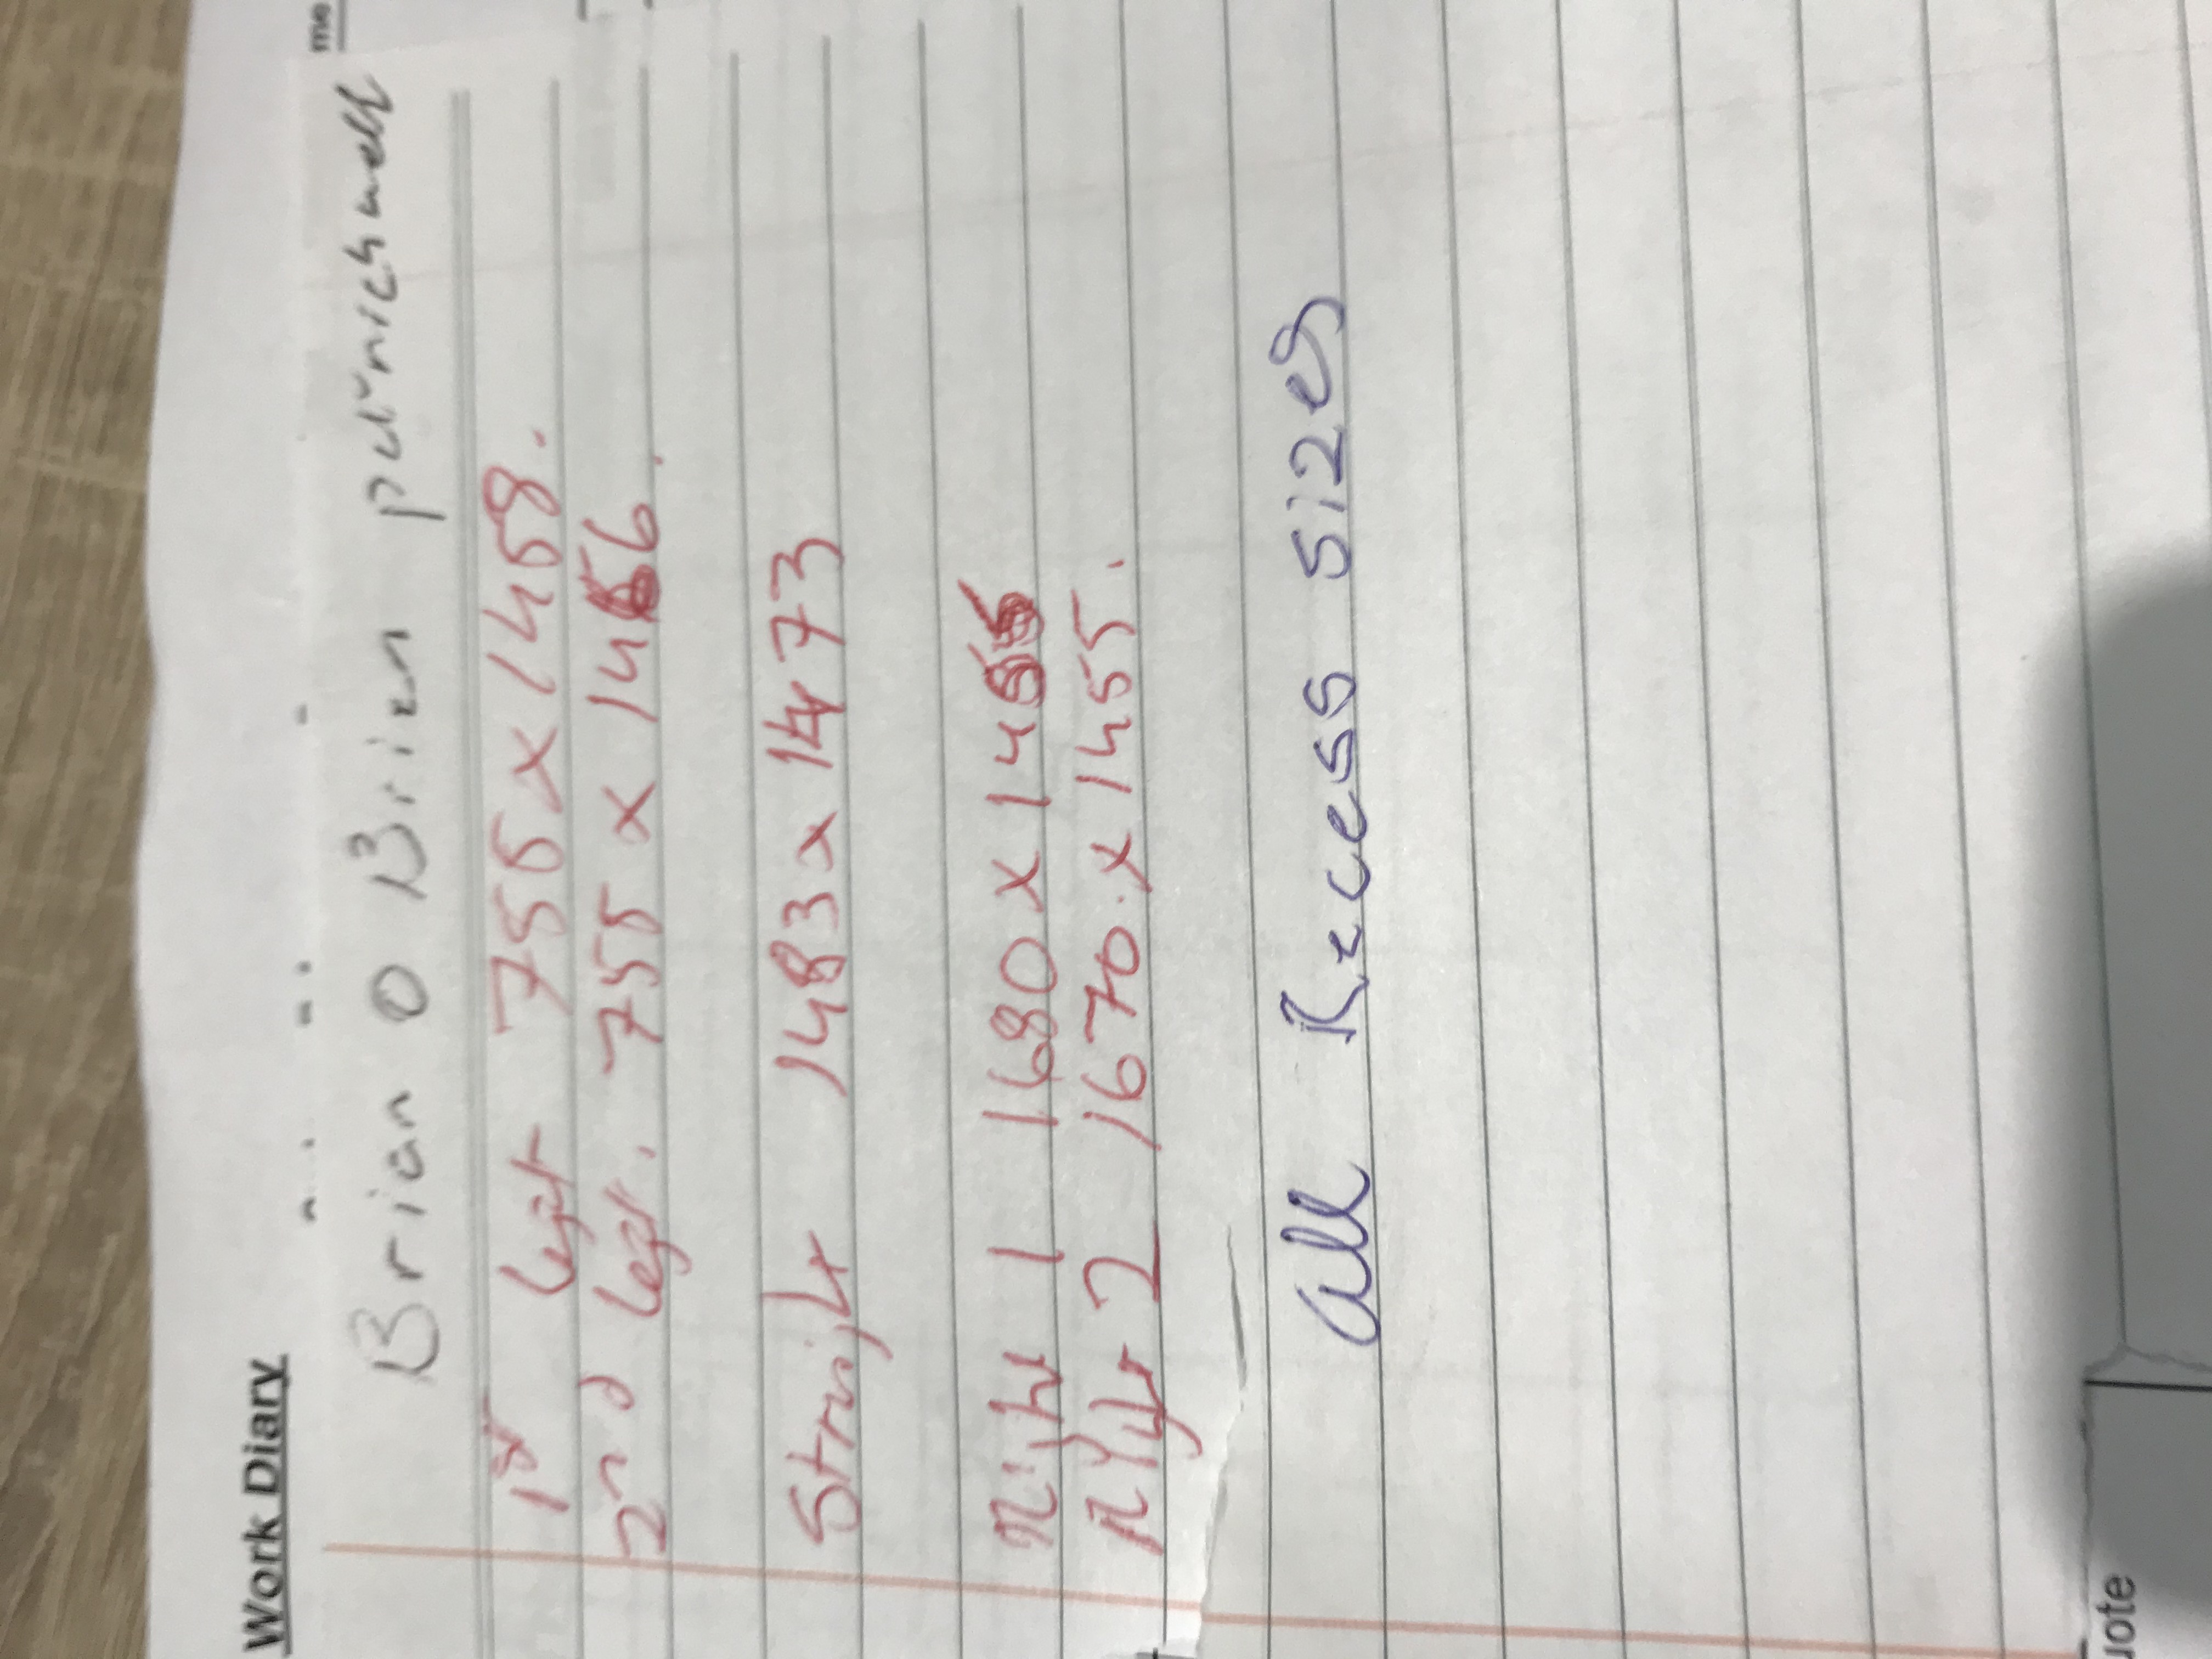 Work Diary
me
Brian O Brien patrrickswell
1st left 755 x 1458.
2nd left. 755 x 1456.
Straight 1483 x 1473
Right 1 1680 x 1455
Right 2 1670 x 1455.
All Recess sizes
uote